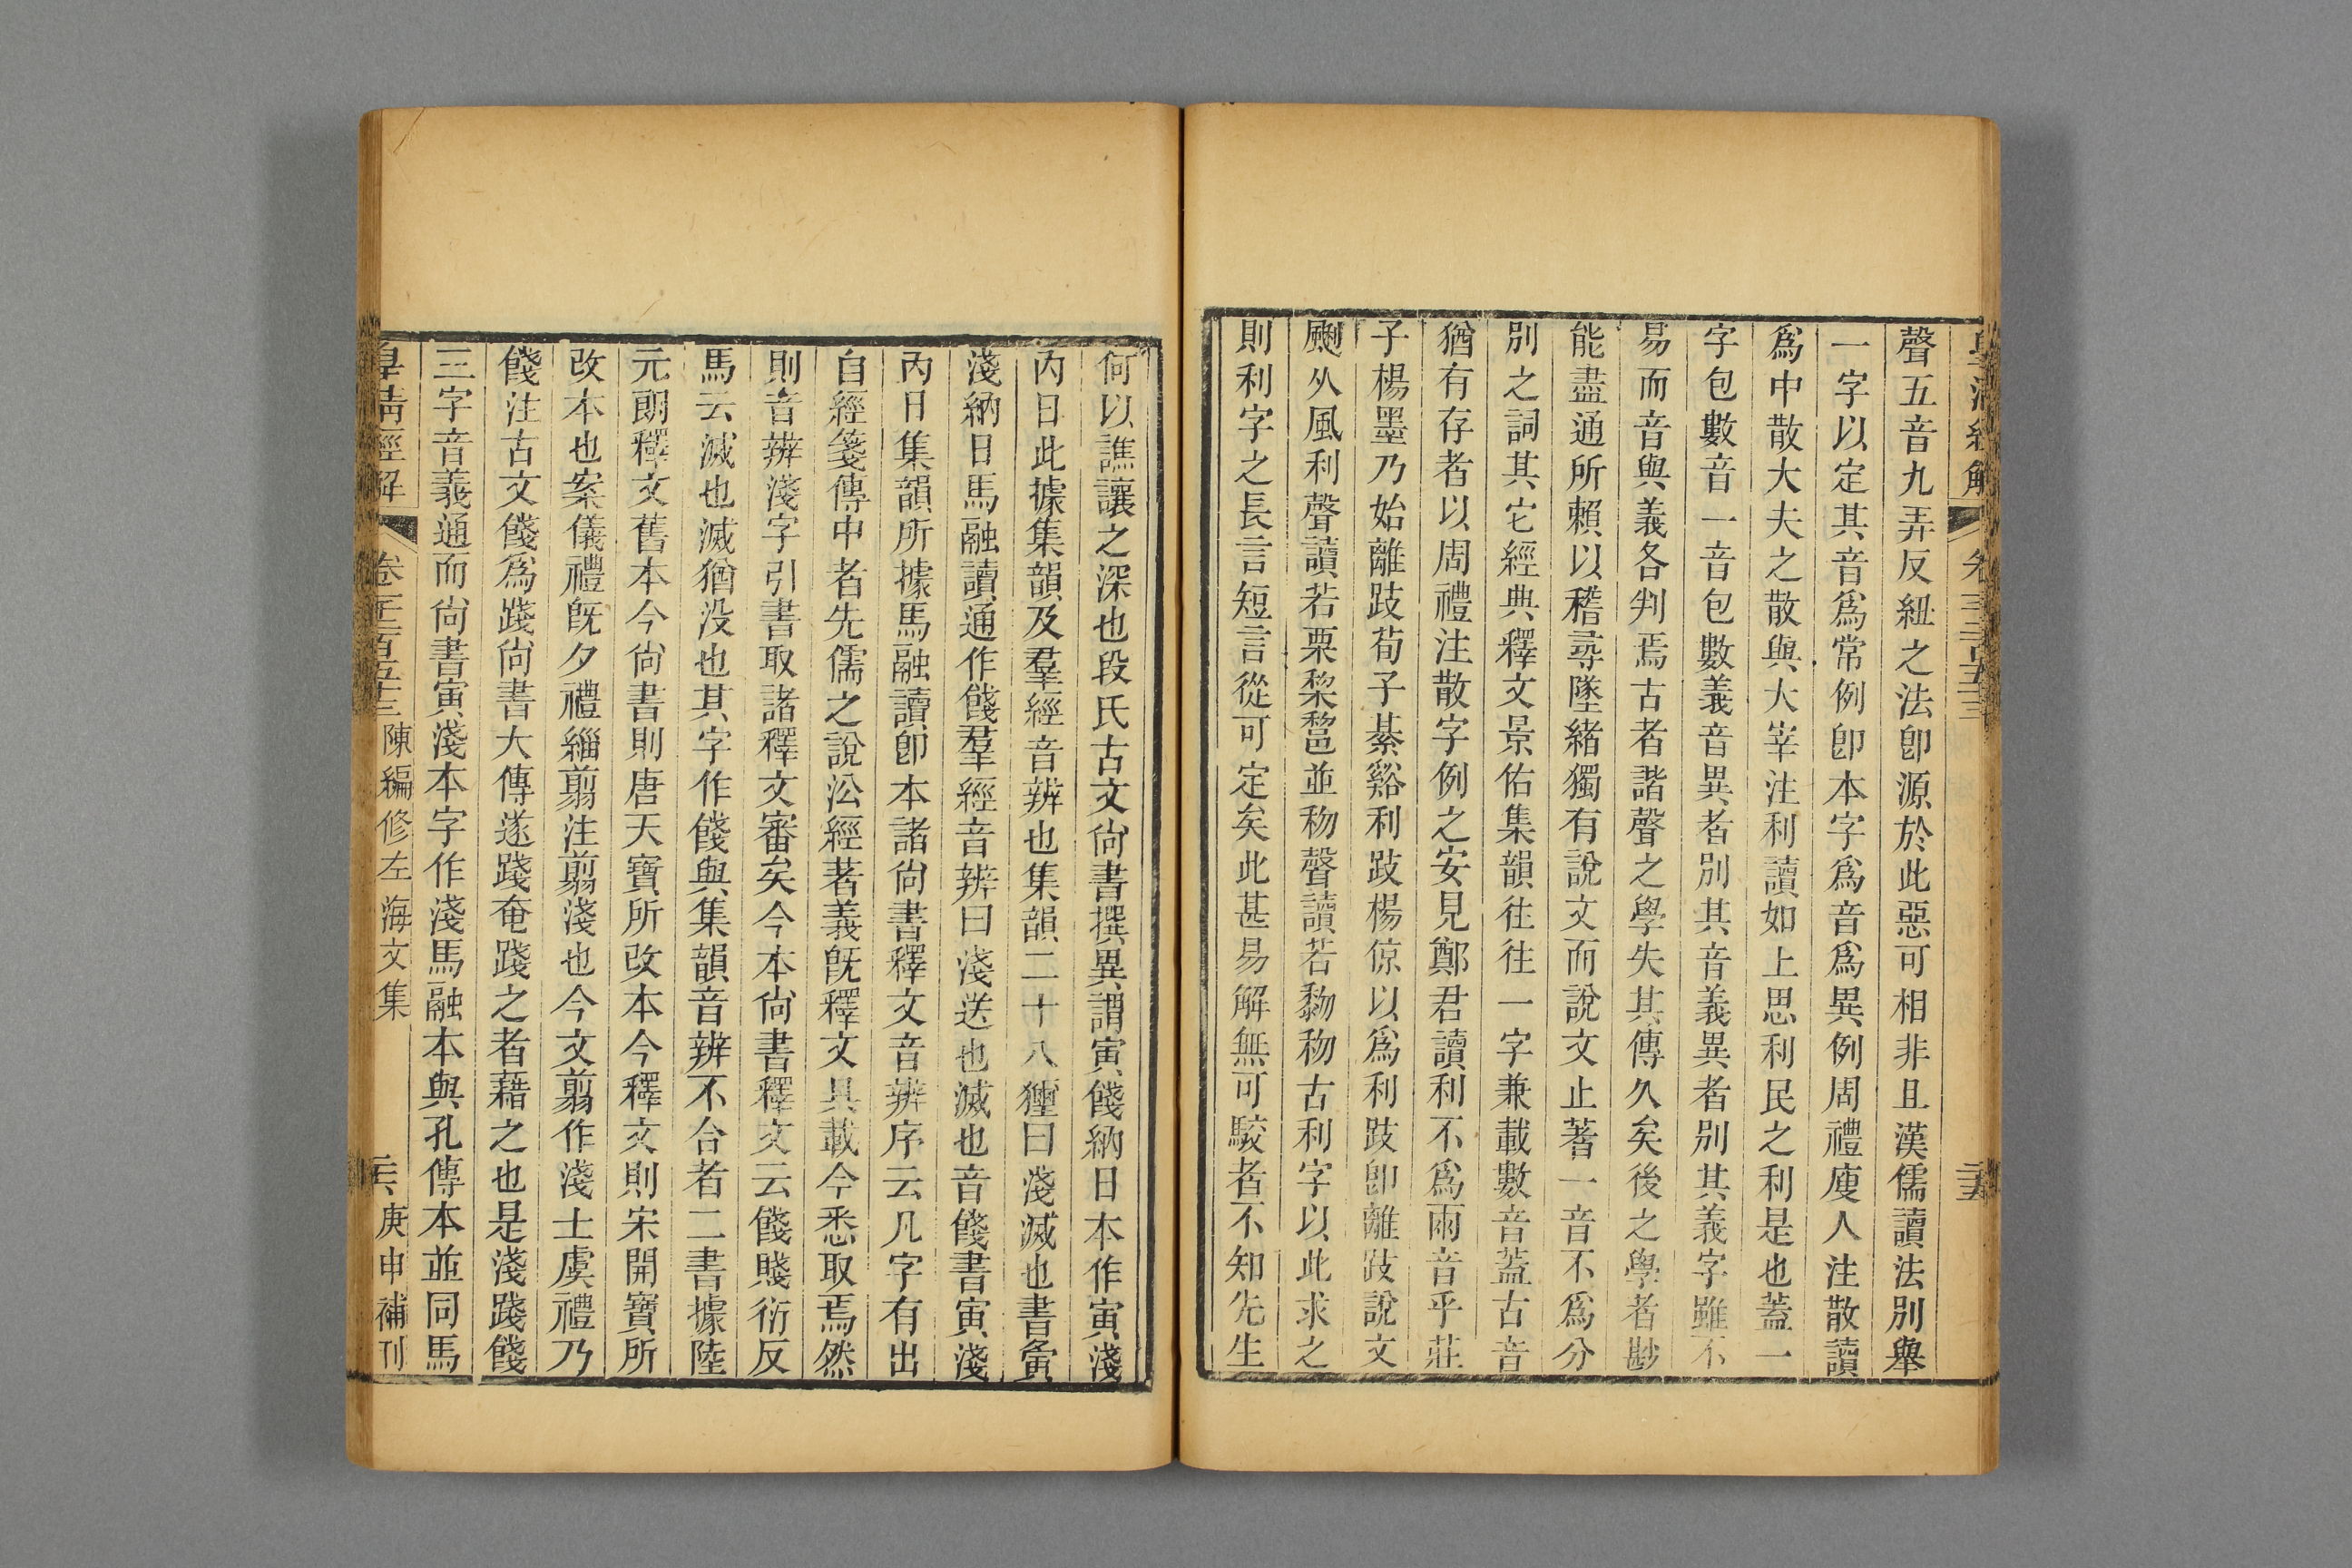 聲五音九弄反紐之法卽源於此惡可相非且漢儒讀法別舉
一字以定其音爲常例卽本字爲音爲異例周禮廋人注散讀
爲中散大夫之散與大宰注利讀如上思利民之利是也蓋一
字包數音一音包數義音異者別其音義異者別其義字雖不
易而音與義各判焉古者諧聲之學失其傳久矣後之學者尠
能盡通所賴以稽尋墜緒獨有說文而說文止著一音不爲分
別之詞其它經典釋文景佑集韻往往一字兼載數音蓋古音
猶有存者以周禮注散字例之安見鄭君讀利不爲兩音乎莊
子楊墨乃始離跂荀子綦谿利跂楊倞以爲利跂卽離跂說文
颲从風利聲讀若栗棃黎邕並䄛聲讀若黎䄛古利字以此求之
則利字之長言短言從可定矣此甚易解無可駮者不知先生
何以譙讓之深也段氏古文尙書撰異謂寅餞納日本作寅淺
內日此據集韻及羣經音辨也集韻二十八獮曰淺滅也書夤
淺納日馬融讀通作餞羣經音辨曰淺送也滅也音餞書寅淺
內日集韻所據馬融讀卽本諸尙書釋文音辨序云凡字有出
自經箋傳中者先儒之說㳂經著義旣釋文具載今悉取焉然
則音辨淺字引書取諸釋文審矣今本尙書釋文云餞賤衍反
馬云滅也滅猶没也其字作餞與集韻音辨不合者二書據陸
元朗釋文舊本今尙書則唐天寶所改本今釋文則宋開寶所
改本也案儀禮旣夕禮緇翦注翦淺也今文翦作淺士虞禮乃
餞注古文餞爲踐尙書大傳遂踐奄踐之者藉之也是淺踐餞
三字音義通而尙書寅淺本字作淺馬融本與孔傳本並同馬
皇清經解
卷一千二百五十三
陳編修左海文集
庚申補刊